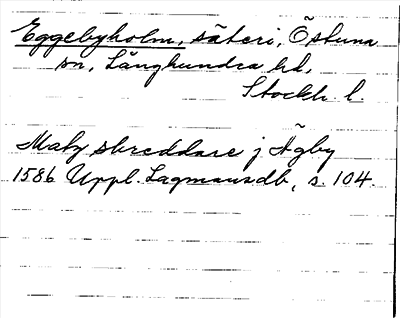 Eggebyholm, säteri, Östuna
sn, Långhundra hd,
Stockh. l.
Matz skreddare j Ägby
1586 Uppl. Lagmansdb, s. 104.